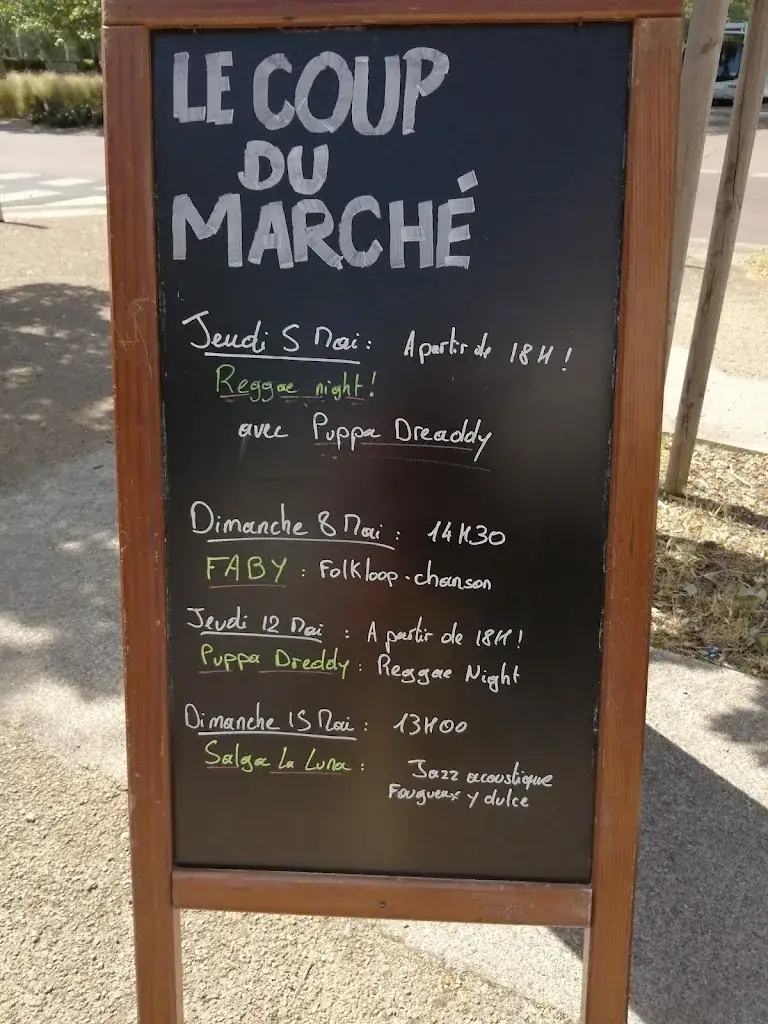 LE COUP
DU
MARCHÉ
Jeudi 5 Mai : A partir de 18H !
Reggae night !
avec Puppa Dreaddy
Dimanche 8 Mai : 14H30
FABY : Folkloop-chanson
Jeudi 12 Mai : A partir de 18H !
Puppa Dreddy : Reggae Night
Dimanche 15 Mai : 13H00
Salga La Luna : Jazz acoustique
Fougueux y dulce